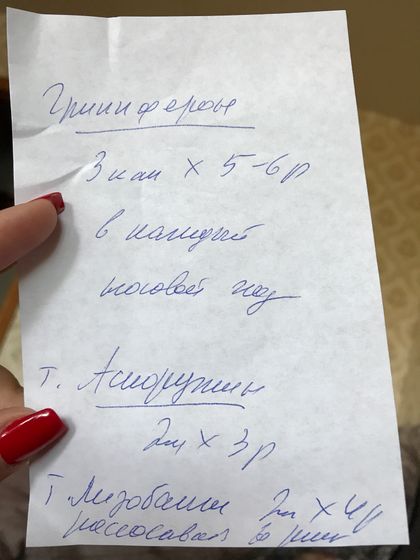 Гриппферон
3 кап х 5-6 р
в каждый
носовой ход
т. Аскорутин
2т х 3 р
т. Лизобакт 2т х 4р
рассасывать во рту